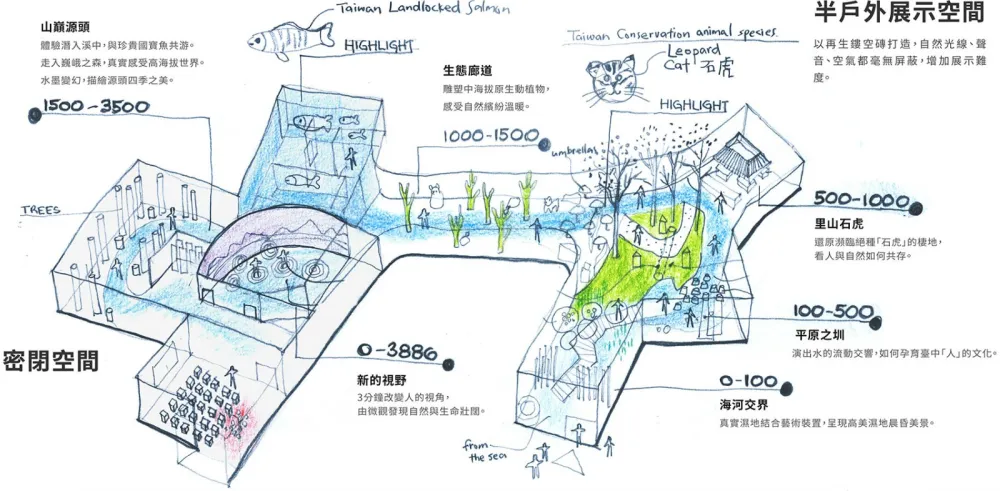 山巔源頭
體驗潛入溪中，與珍貴國寶魚共游。
走入巍峨之森，真實感受高海拔世界。
水墨變幻，描繪源頭四季之美。
1500-3500
Taiwan Landlocked Salmon
HIGHLIGHT
生態廊道
雕塑中海拔原生動植物，
感受自然繽紛溫暖。
1000-1500
umbrellas
Taiwan Conservation animal species.
Leopard
Cat 石虎
HIGHLIGHT
半戶外展示空間
以再生鏤空磚打造，自然光線、聲
音、空氣都毫無屏蔽，增加展示難
度。
TREES
500-1000
里山石虎
還原瀕臨絕種「石虎」的棲地，
看人與自然如何共存。
100-500
平原之圳
演出水的流動交響，如何孕育臺中「人」的文化。
密閉空間
0-3886
新的視野
3分鐘改變人的視角，
由微觀發現自然與生命壯闊。
0-100
海河交界
真實濕地結合藝術裝置，呈現高美濕地晨昏美景。
from
the sea